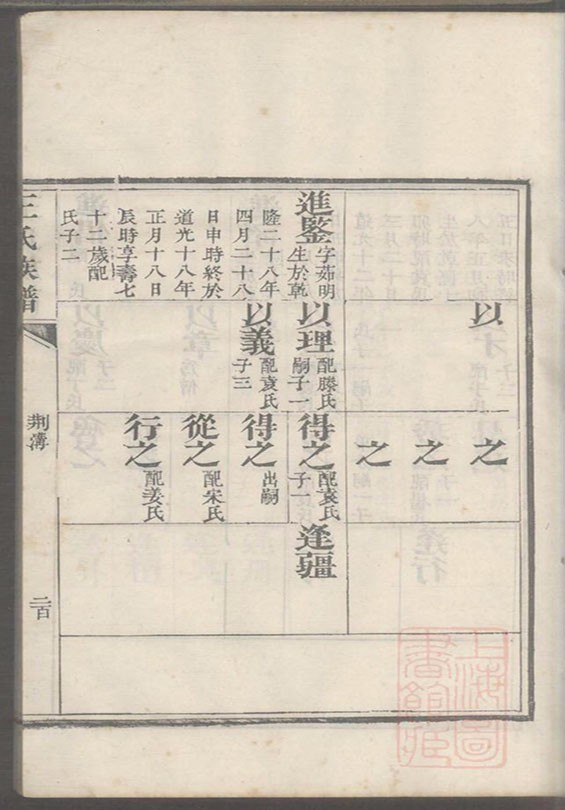 以
之
之
之
進鑒字茹明
生於乾
隆二十八年
四月二十八
日申時終於
道光十八年
正月十八日
辰時享壽七
十二歲配
氏子二
以理配滕氏
嗣子一
以義配袁氏
子三
得之配袁氏
子一
得之出嗣
從之配宋氏
行之配姜氏
逢疆
王氏族譜
荆溝
二百
上海圖書館藏